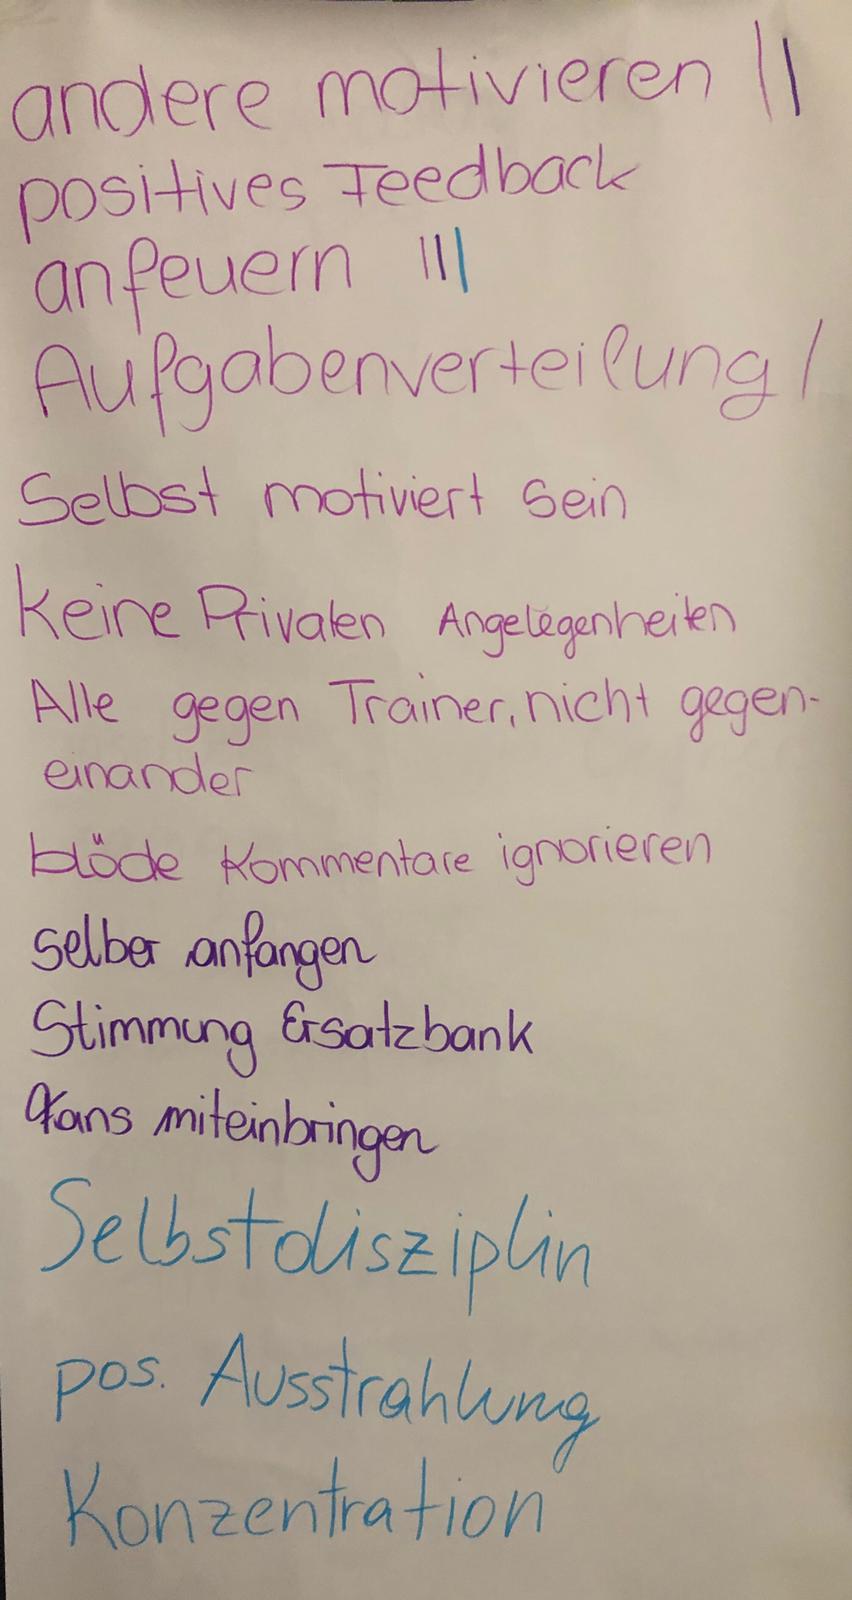 andere motivieren ||
positives Feedback
anfeuern |||
Aufgabenverteilung |
Selbst motiviert sein
keine Privaten Angelegenheiten
Alle gegen Trainer, nicht gegen-
einander
blöde Kommentare ignorieren
selber anfangen
Stimmung Ersatzbank
Fans miteinbringen
Selbstdisziplin
pos. Ausstrahlung
Konzentration